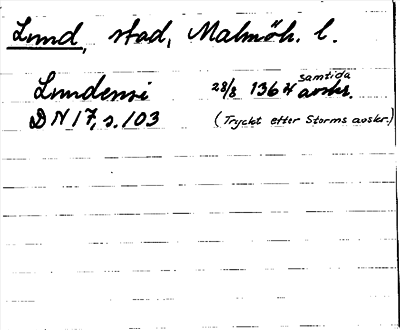 Lund, stad, Malmöh. l.
samtida
Lundensi 28/8 1364 avskr.
DN 17, s. 103 (Tryckt efter Storms avskr.)